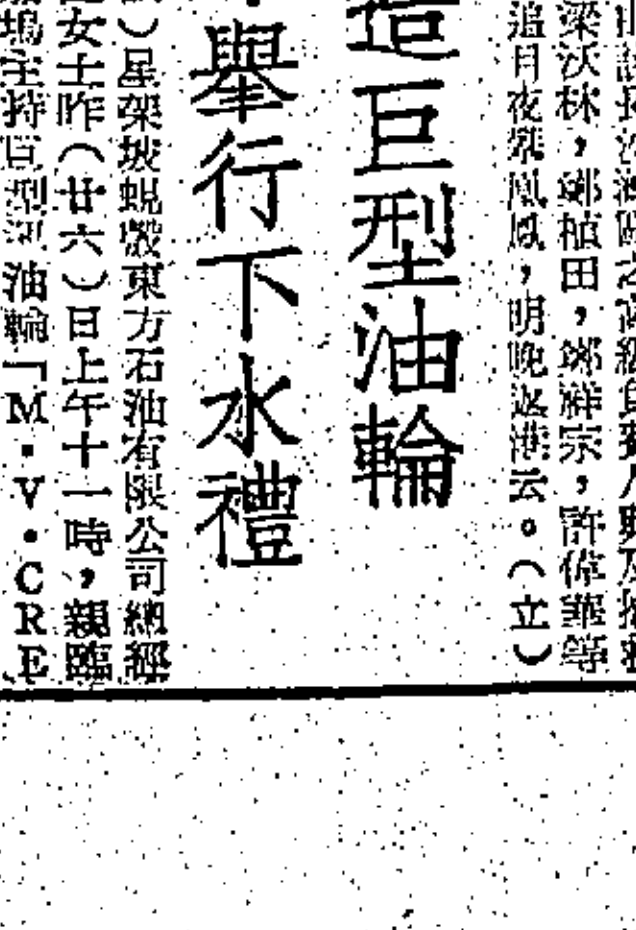 梁沃林,鄭植田,鄭祥宗,許偉華等
追月夜祭鳳凰,明晚返港云。(立)
造巨型油輪
舉行下水禮
)星架坡蜆殼東方石油有限公司總經
女士昨(廿六)日上午十一時,親臨
塢主持巨型汽油輪「M.V.CRE